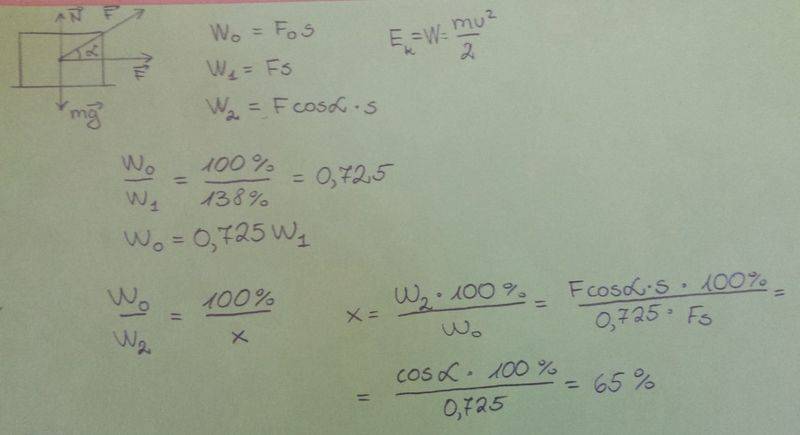 N⃗ F⃗
α
F⃗
mg⃗
W₀ = F₀s
W₁ = Fs
W₂ = F cosα · s
Eₖ = W = mv²/2
W₀/W₁ = 100%/138% = 0,725
W₀ = 0,725 W₁
W₀/W₂ = 100%/x
x = W₂ · 100%/W₀ = Fcosα·s · 100%/0,725 · Fs =
= cosα · 100%/0,725 = 65%